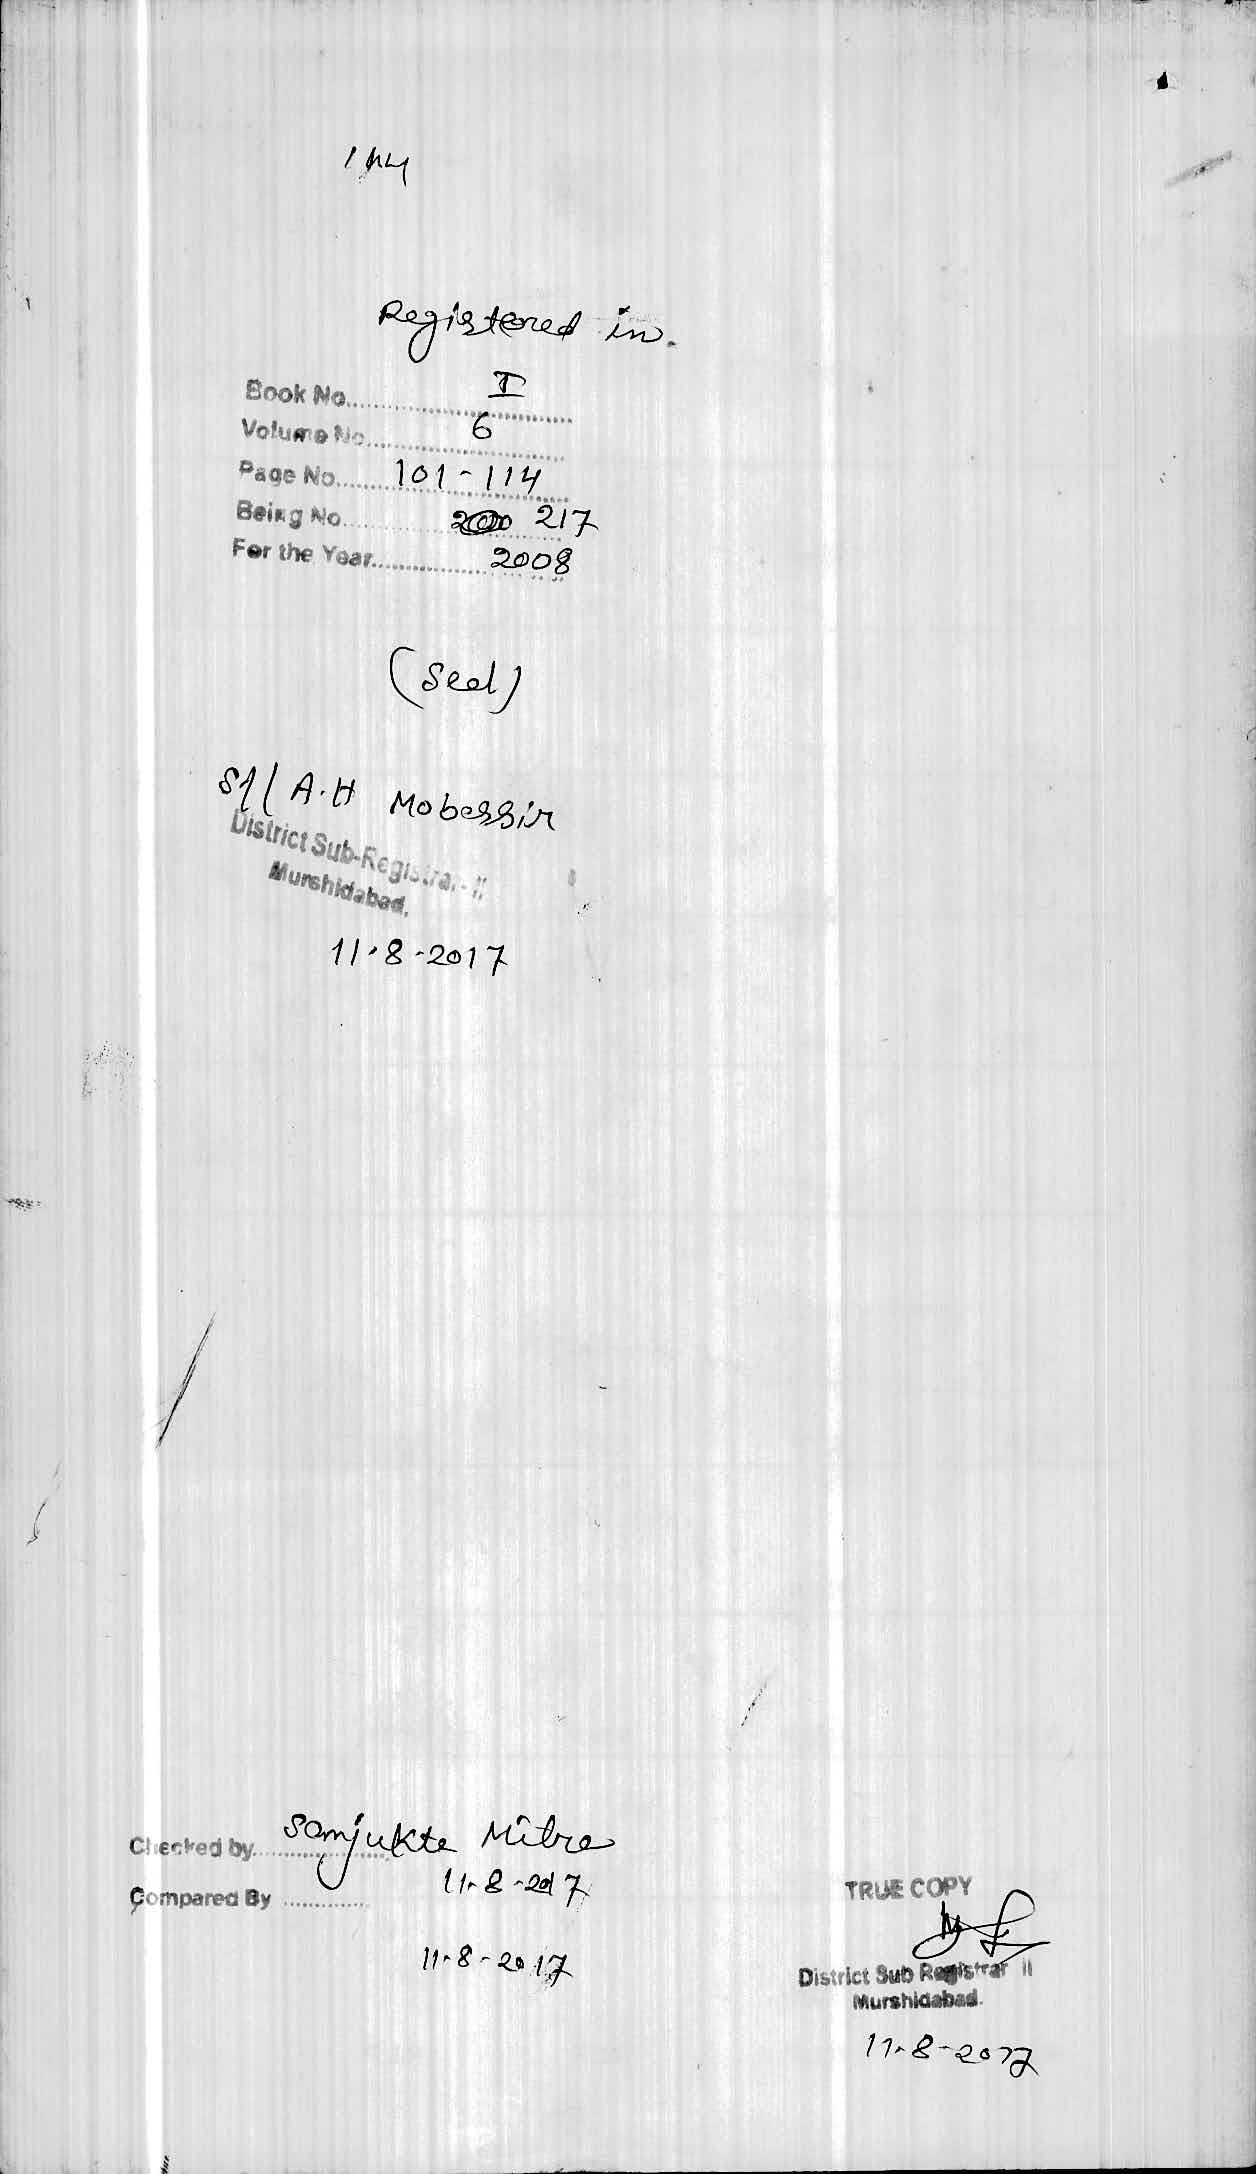 114
Registered in.
Book No. I
Volume No. 6
Page No. 101-114
Being No. 217
For the Year 2008
(Seal)
Sd/ A.H Mobassir
District Sub-Registrar-II
Murshidabad.
11.8-2017
Checked by Sanjukta Mitra
11-8-2017
Compared By
11-8-2017
TRUE COPY
District Sub Registrar II
Murshidabad.
11-8-2017